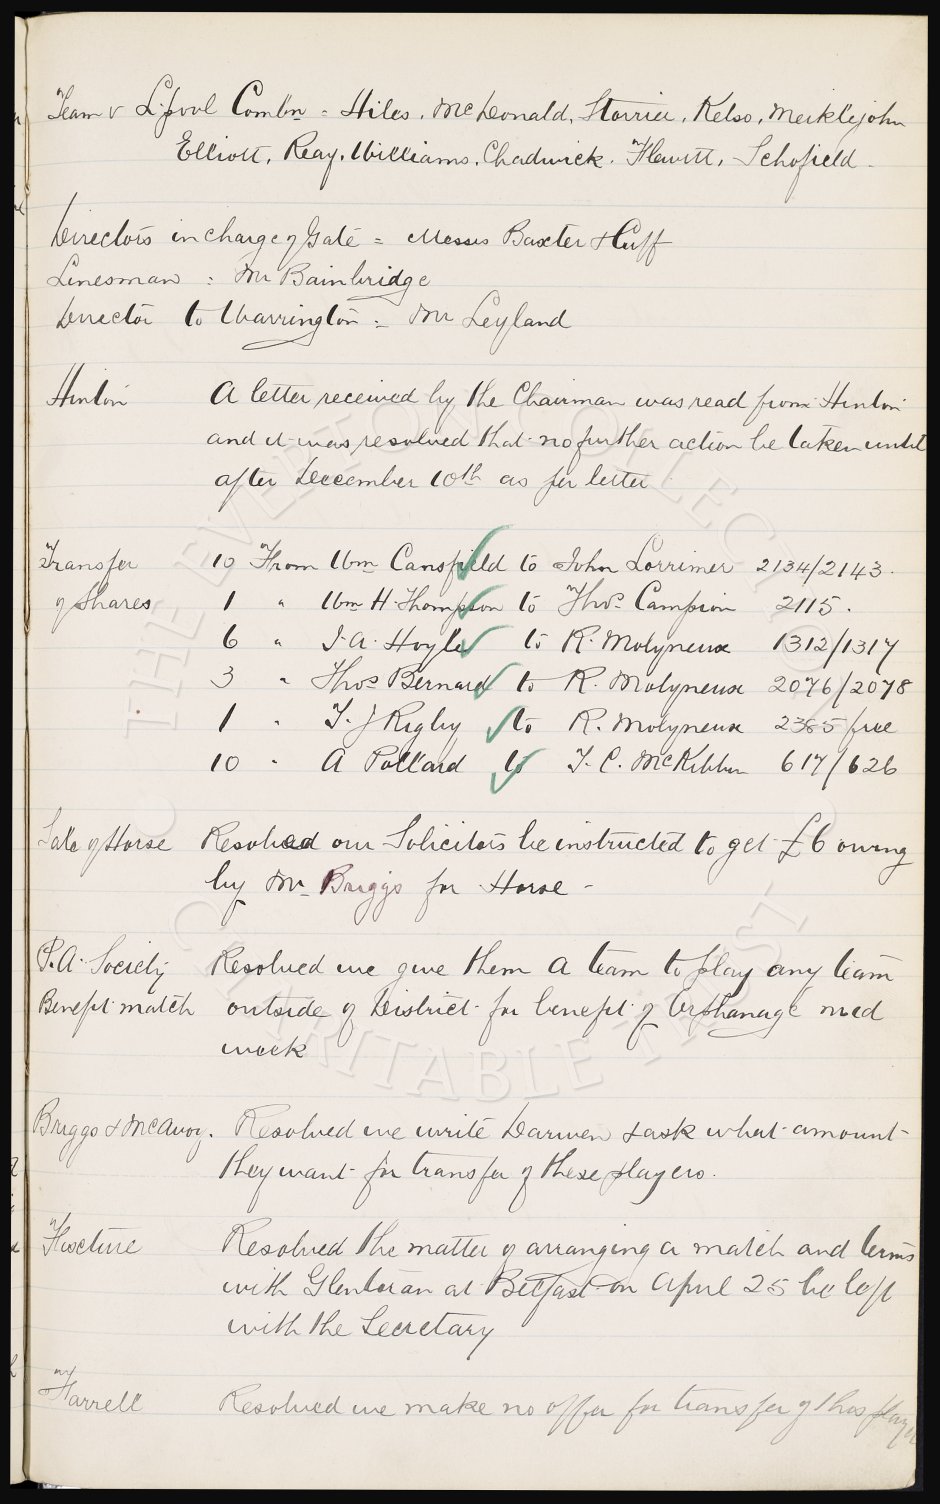 Team v L'pool Combn = Hiles, McDonald, Storrier, Kelso, Meiklejohn
Elliott, Reay, Williams, Chadwick, Flewitt, Schofield -
Directors in charge of Gate = Messrs Baxter & Cuff
Linesman = Mr Bainbridge
Director to Warrington = Mr Leyland
Hinton A letter received by the Chairman was read from Hinton
and it was resolved that no further action be taken until
after December 10th as per letter
Transfer 10 From Wm Cansfield to John Lorrimer 2134/2143.
of Shares 1 " Wm H. Thompson to Thos. Campion 2115.
6 " J. A. Hoyle to R. Molyneux 1312/1317
3 " Thos Bernard to R. Molyneux 2076/2078
1 " T. J Rigby to R. Molyneux 2365 free
10 " A Pollard to T. C. McKibbin 617/626
Sale of Horse Resolved our Solicitors be instructed to get £6 owing
by Mr Briggs for Horse -
P.A. Society Resolved we give them a team to play any team
Benefit match outside of District for benefit of Orphanage mid
week
Briggs & McAvoy. Resolved we write Darwen & ask what amount
they want for transfer of these players.
Fixture Resolved the matter of arranging a match and terms
with Glentoran at Belfast on April 25 be left
with the Secretary
Farrell Resolved we make no offer for transfer of this player
THE EVERTON COLLECTION
CHARITABLE TRUST